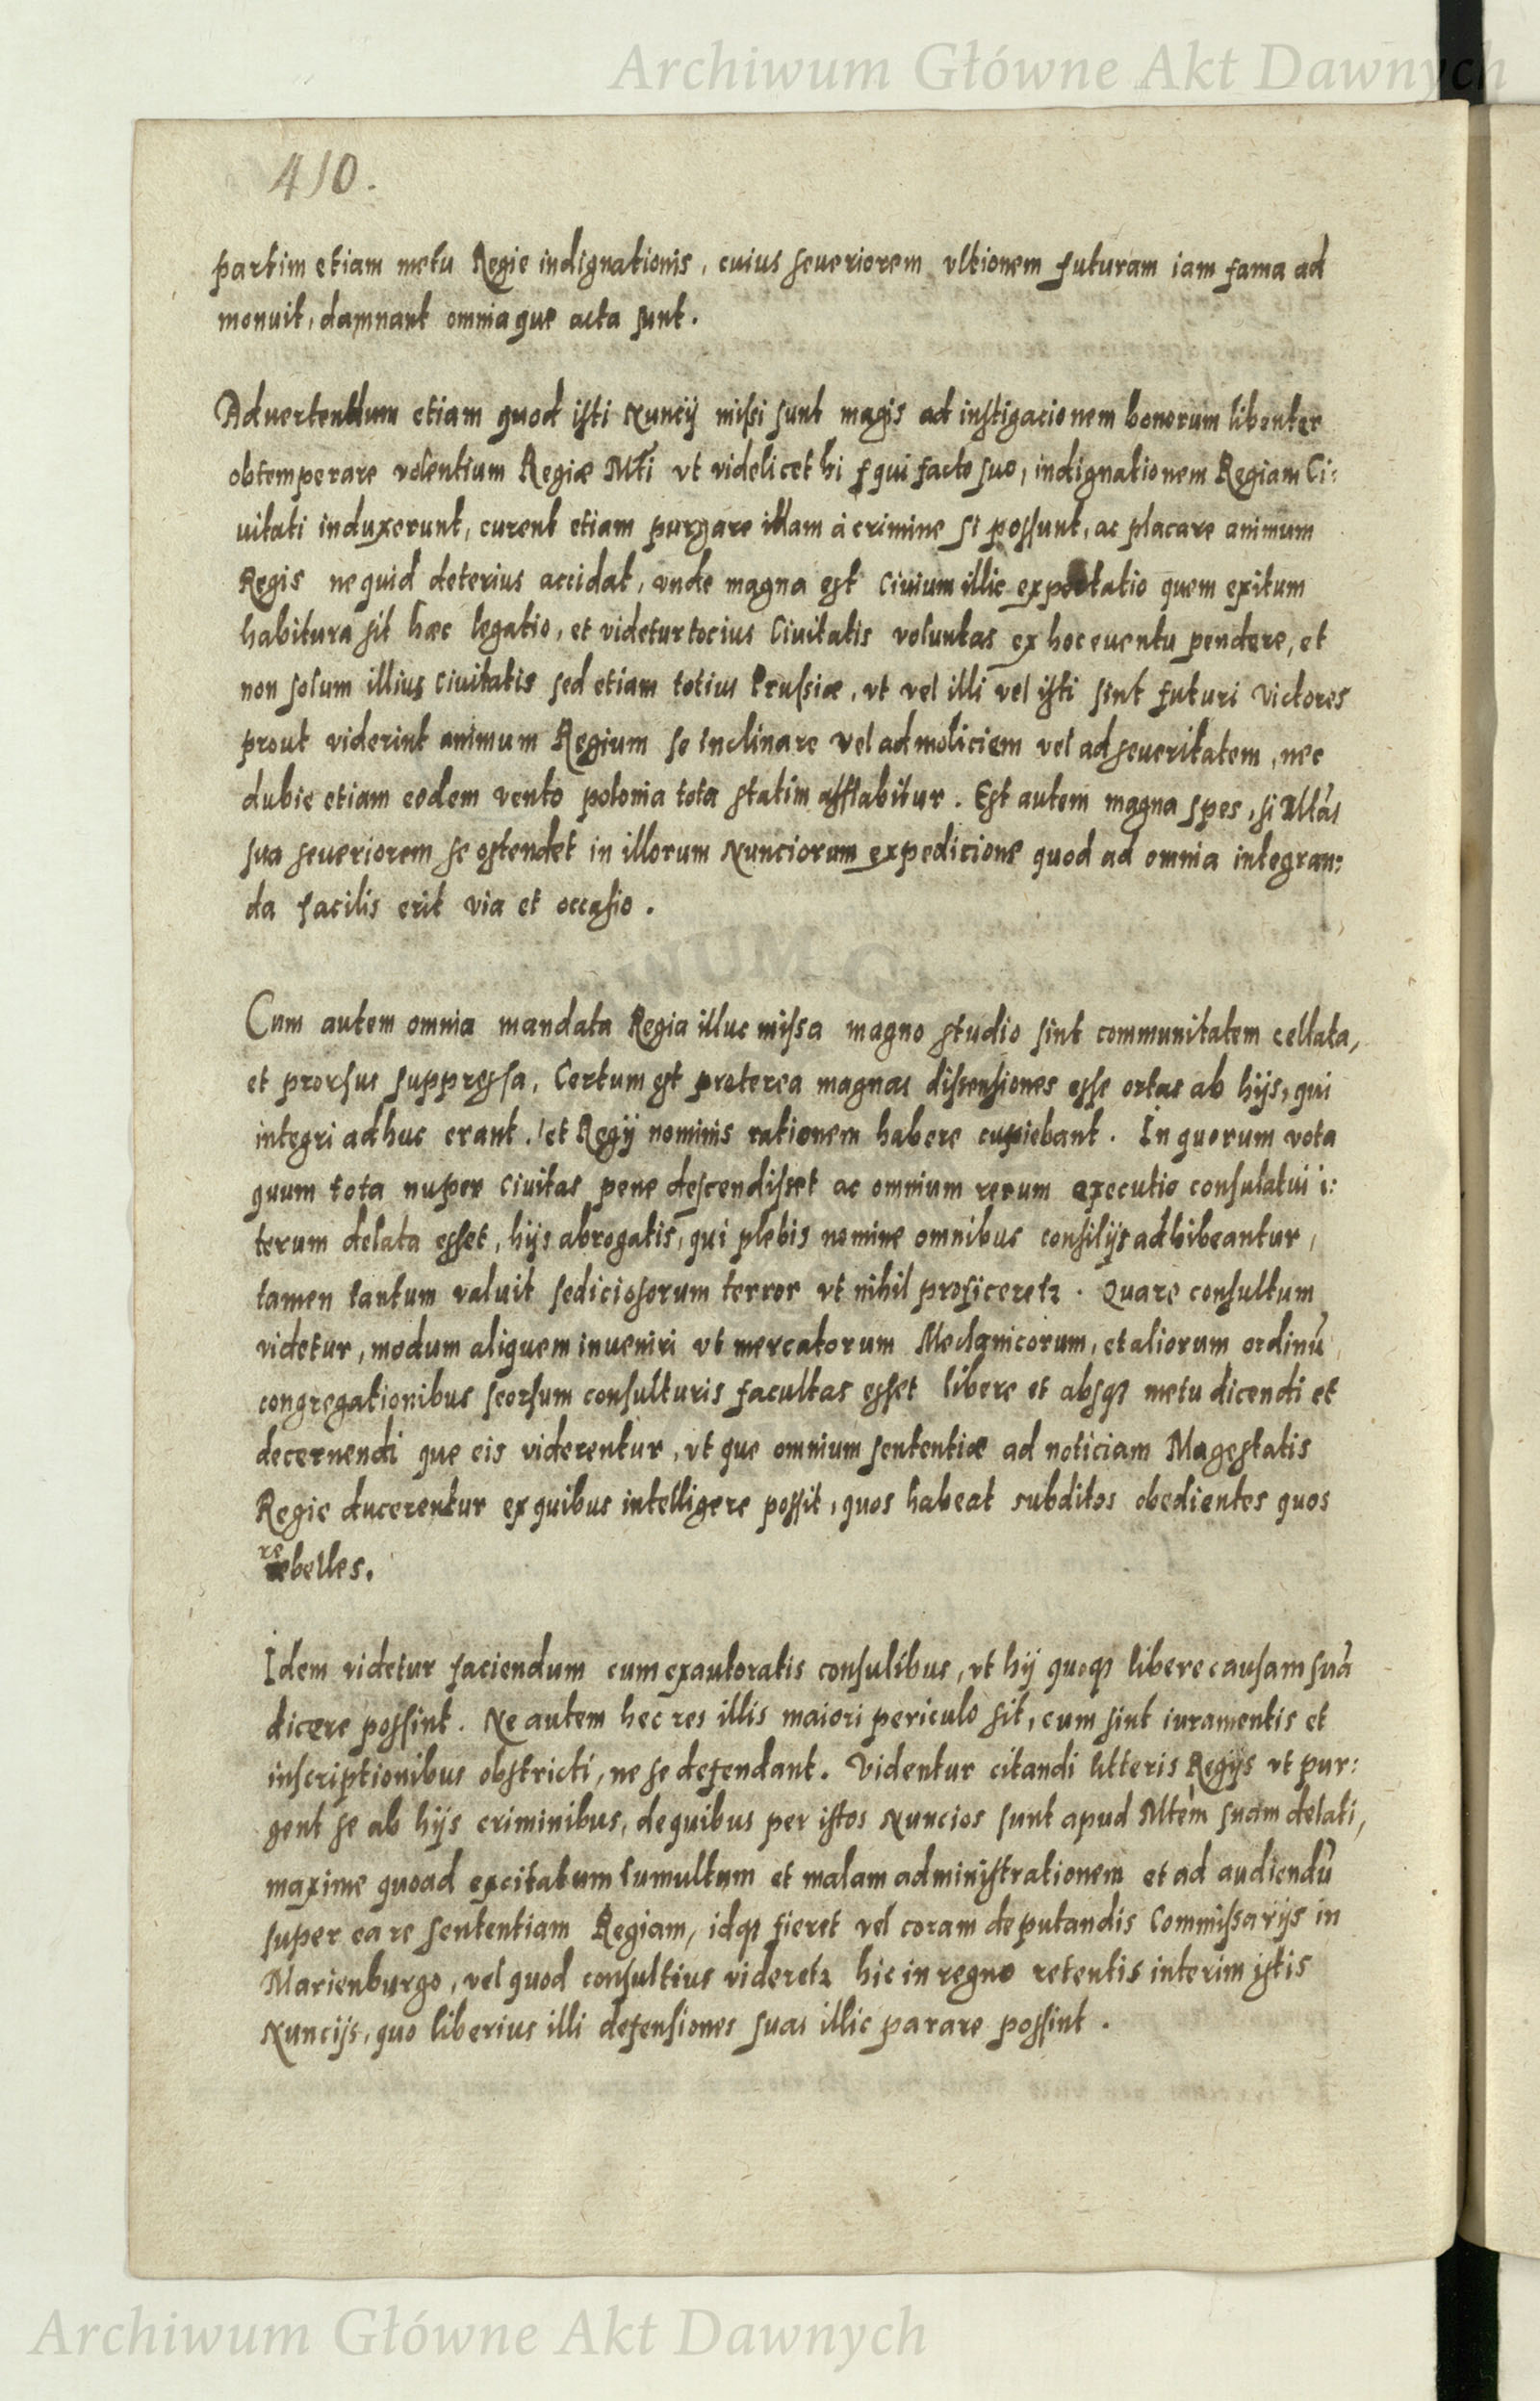 Archiwum Główne Akt Dawnych
410.
partim etiam metu Regie indignationis, cuius seueriorem vltionem futuram iam fama ad
monuit, damnant omnia que acta sunt.
Aduertendum etiam quod isti Nuncij missi sunt magis ad instigacionem bonorum libenter
obtemperare volentium Regiæ Mti vt videlicet hi qui facto suo, indignationem Regiam Ci:
uitati induxerunt, curent etiam purgare illam à crimine si possunt, ac placare animum
Regis ne quid deterius accidat, vnde magna est Ciuium illic expectatio quem exitum
habitura sit hæc legatio, et videtur tocius Ciuitatis voluntas ex hoc euentu pendere, et
non solum illius Ciuitatis sed etiam totius Prussiæ, vt vel illi vel isti sint futuri victores
prout viderint animum Regium se inclinare vel ad moliciem vel ad seueritatem, nec
dubie etiam eodem vento polonia tota statim afflabitur. Est autem magna spes, si Mtas
sua seueriorem se ostendet in illorum Nunciorum expedicione quod ad omnia integran:
da facilis erit via et occasio.
Cum autem omnia mandata Regia illuc missa magno studio sint communitatem cellata,
et prorsus suppressa, Certum est proterea magnas dissensiones esse ortas ab hijs, qui
integri adhuc erant, et Regij nominis rationem habere cupiebant. In quorum vota
quum tota nuper Ciuitas pene descendisset ac omnium rerum executio consulatui i:
terum delata esset, hijs abrogatis, qui plebis nomine omnibus consilijs adhibeantur,
tamen tantum valuit sediciosorum terror vt nihil proficeretz. Quare consultum
videtur, modum aliquem inueniri vt mercatorum Mechanicorum, et aliorum ordinū
congregationibus seorsum consulturis facultas esset libere et absqz metu dicendi et
decernendi que eis viderentur, vt que omnium sententiæ ad noticiam Magestatis
Regie ducerentur ex quibus intelligere possit, quos habeat subditos obedientes quos
rebelles.
Idem videtur faciendum cum exautoratis consulibus, vt hij quoqz libere causam suā
dicere possint. Ne autem hec res illis maiori periculo sit, cum sint iuramentis et
inscriptionibus obstricti, ne se defendant. Videntur citandi litteris Regijs vt pur:
gent se ab hijs criminibus, de quibus per istos Nuncios sunt apud Mtem suam delati,
maxime quoad excitatum tumultum et malam administrationem et ad audiendū
super ea re sententiam Regiam, idqz fieret vel coram deputandis Commissarijs in
Marienburgo, vel quod consultius videretz hic in regno retentis interim istis
Nuncijs, quo liberius illi defensiones suas illic parare possint.
Archiwum Główne Akt Dawnych